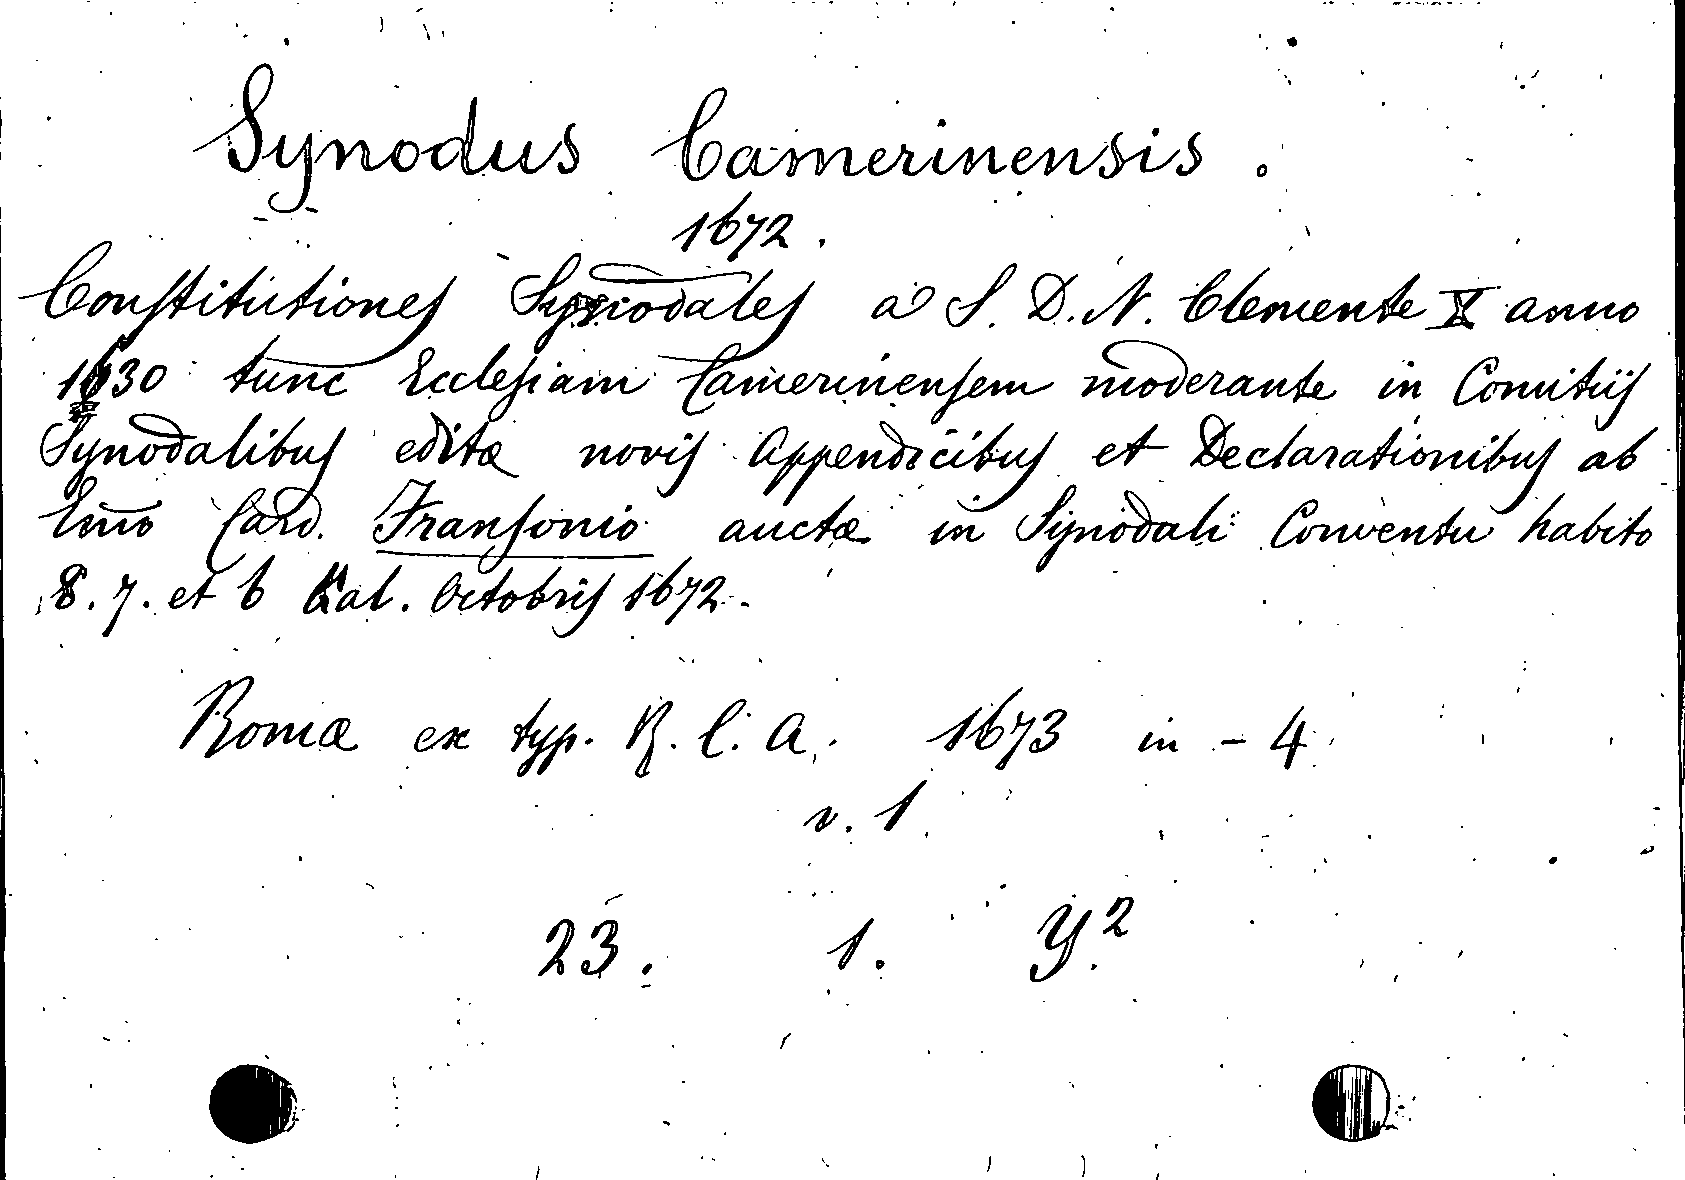 Synodus Camerinensis.
1672.
Constitutiones Synodales a S. D. N. Clemente X anno
1630 tunc Ecclesiam Camerinensem moderante in Comitiis
Synodalibus editæ novis Appendicibus et Declarationibus ab
Emo Card. Fransonio auctæ in Synodali Conventu habito
8. 7. et 6 Kal. Octobris 1672.
Romæ ex typ. R. C. A. 1673 in-4
v. 1
23. 1. Y²